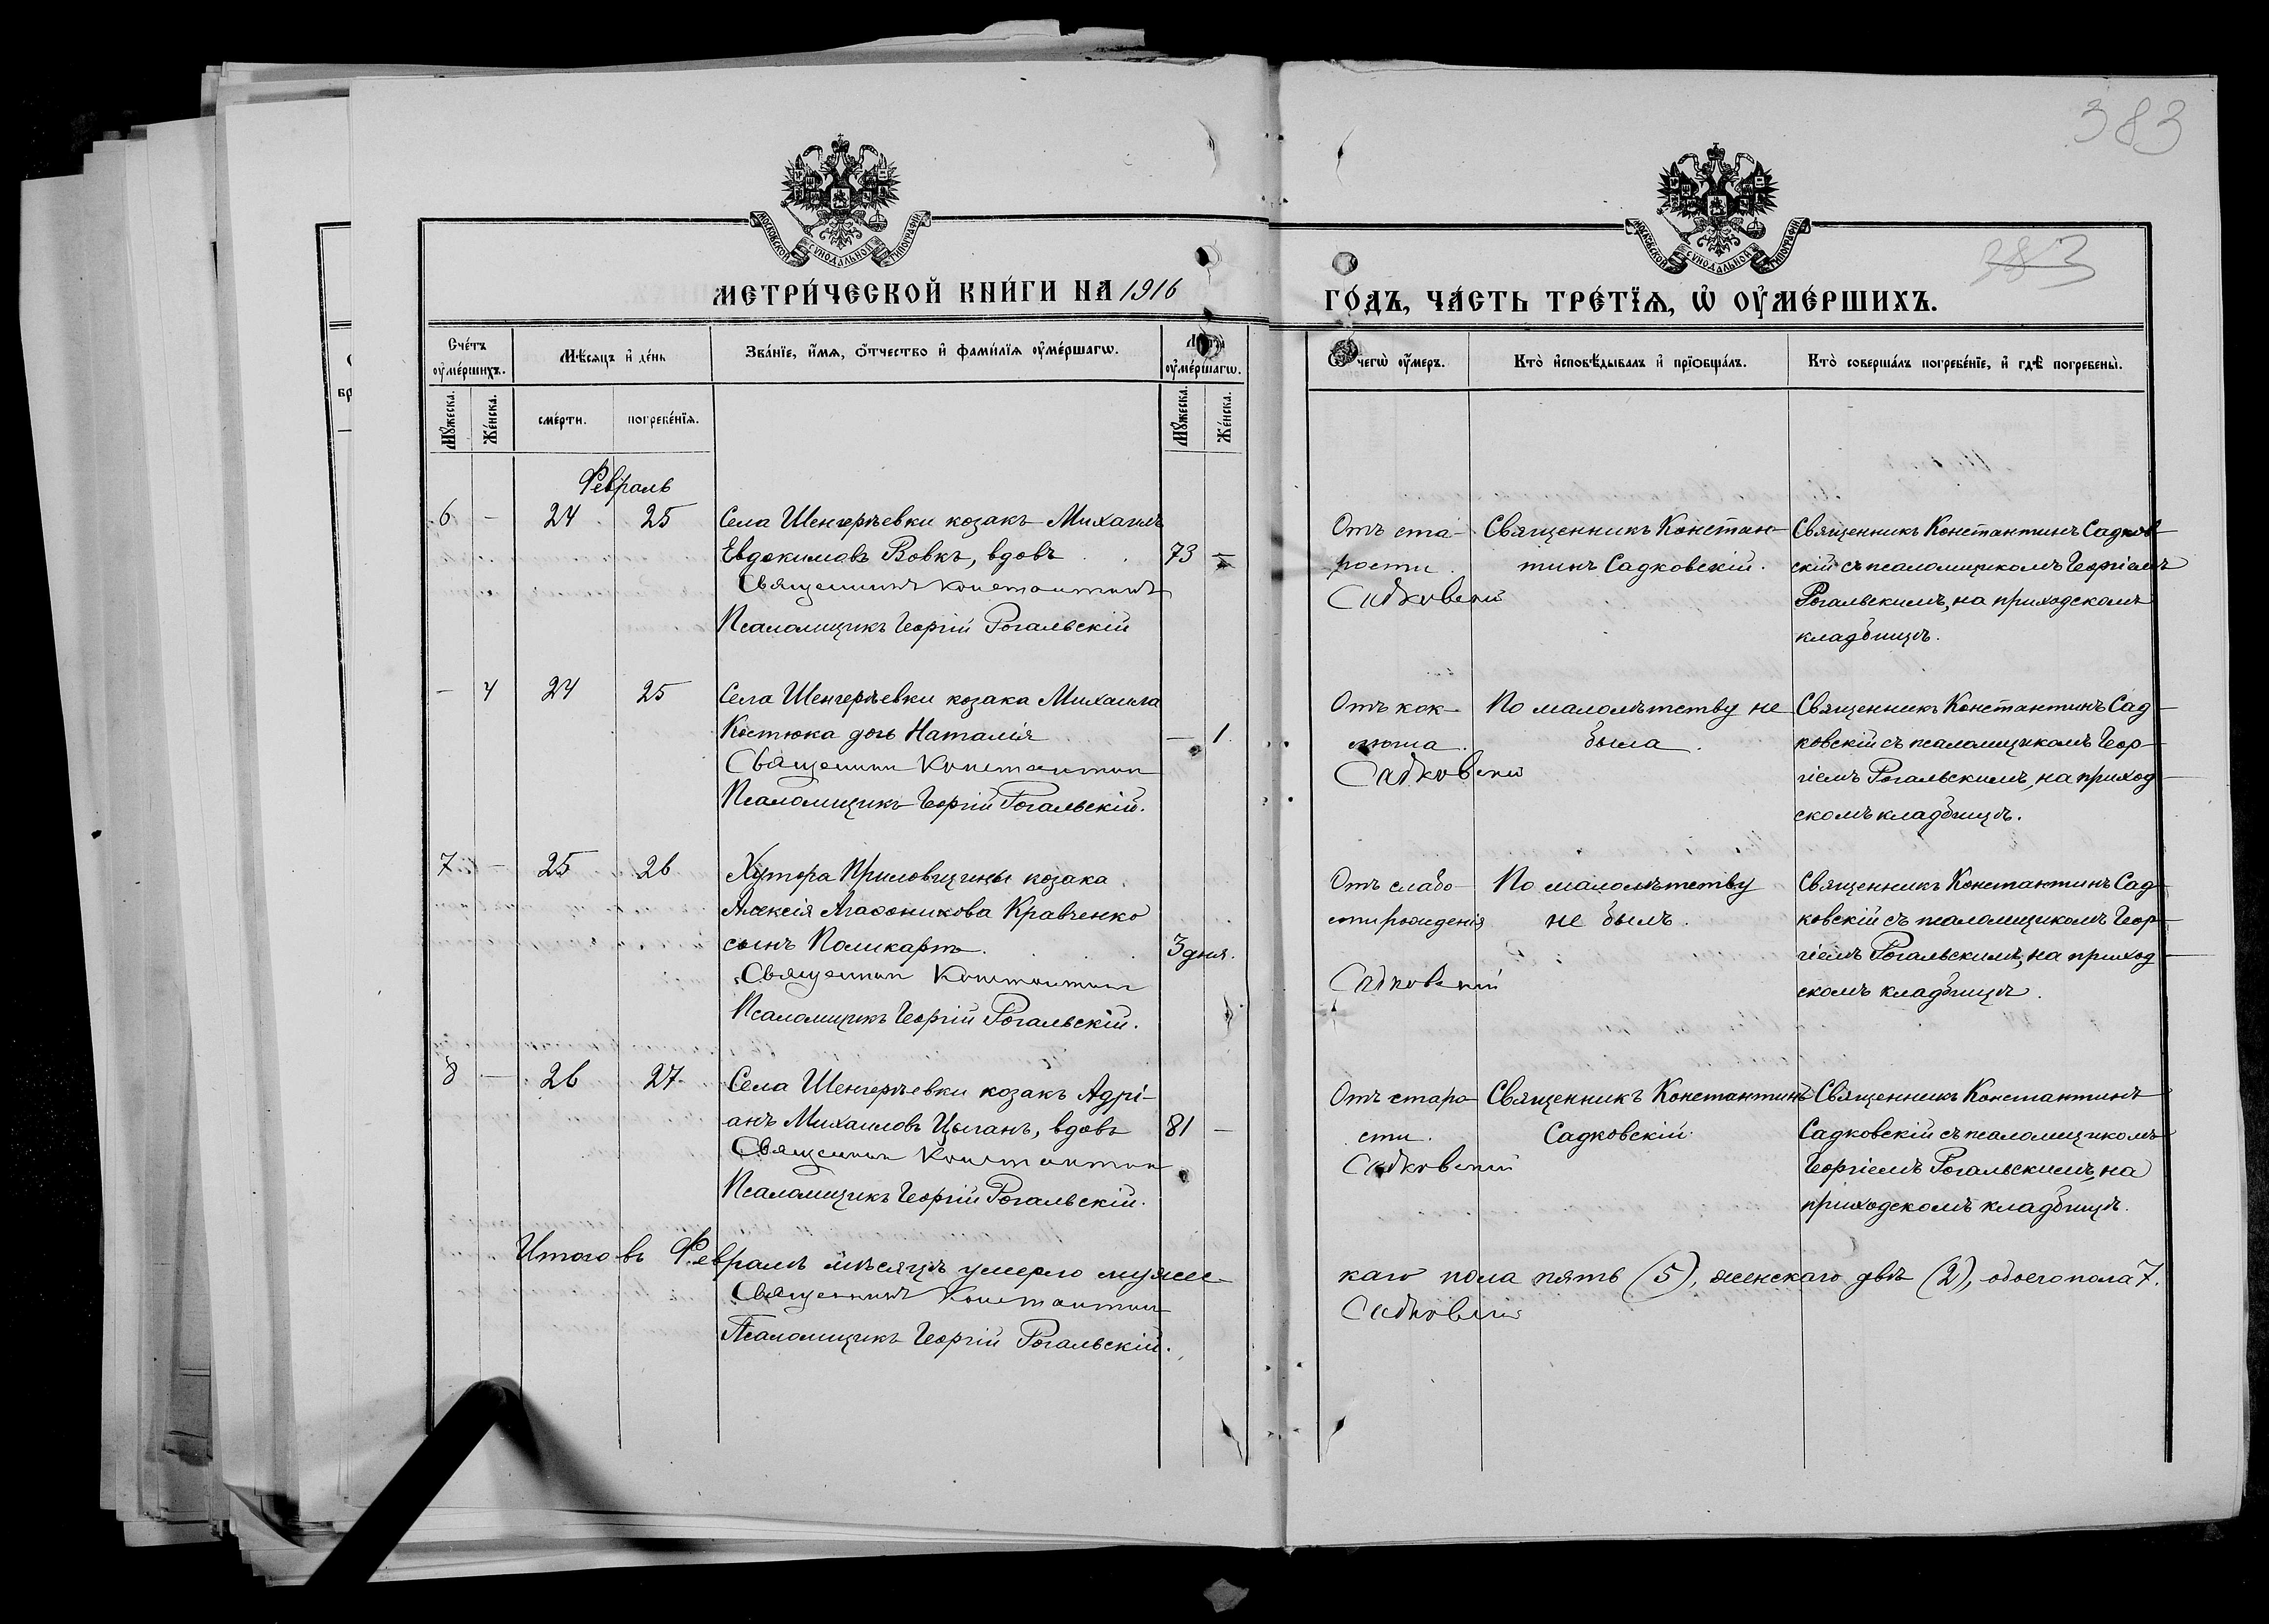 383
383
МОСКОВСКОЙ СѴНОДАЛЬНОЙ ТИПОГРАФІИ
МОСКОВСКОЙ СѴНОДАЛЬНОЙ ТИПОГРАФІИ
МЕТРИ́ЧЕСКОЙ КНИ́ГИ НА 1916
ГО́ДЪ, ЧА́СТЬ ТРЕ́ТЇѦ, Ѡ҆ ОУ҆МЕ́РШИХЪ.
Сче́тъ оу҆ме́ршихъ.
Мѣ́сяцъ и҆ де́нь
Зва́нїе, и҆́мѧ, ѻ҆́тчество и҆ фами́лїѧ оу҆ме́ршагѡ.
оу҆ме́ршагѡ.
чегѡ̀ оу҆́меръ.
Кто̀ и҆сповѣ́дывалъ и҆ прїѻбща́лъ.
Кто̀ соверша́лъ погребе́нїе, и҆ гдѣ̀ погребены̀.
Мꙋ́жеска.
Же́нска.
сме́рти.
погребе́нїѧ.
Мꙋ́жеска.
Же́нска.
Февраль
6 - 24 25 Села Шенгерѣевки козакъ Михаилъ
Евдокимовъ Вовкъ, вдовъ 73 -
Священникъ Константинъ
Псаломщикъ Георгій Рогальскій
Отъ ста-
рости.
Садковскій
Священникъ Констан-
тинъ Садковскій.
Священникъ Константинъ Садков-
скій съ псаломщикомъ Георгіемъ
Рогальскимъ, на приходскомъ
кладбищѣ.
- 4 24 25 Села Шенгерѣевки козака Михаила
Костюка дочь Наталія - 1
Священникъ Константин
Псаломщикъ Георгій Рогальскій.
Отъ кок-
люша.
Садковскій
По малолѣтству не
была.
Священникъ Константинъ Сад-
ковскій съ псаломщикомъ Геор-
гіемъ Рогальскимъ, на приход-
скомъ кладбищѣ.
7 - 25 26 Хутора Приловщины козака
Алексія Агаѳоникова Кравченко
сынъ Поликарпъ. 3 дня.
Священник Константин
Псаломщикъ Георгій Рогальскій.
Отъ слабо-
сти рожденія
Садковскій
По малолѣтству
не былъ.
Священникъ Константинъ Сад-
ковскій съ псаломщикомъ Геор-
гіемъ Рогальскимъ, на приход-
скомъ кладбищѣ.
8 - 26 27 Села Шенгерѣевки козакъ Адрі-
анъ Михаиловъ Цыганъ, вдовъ 81 -
Священник Константин
Псаломщикъ Георгій Рогальскій.
Отъ старо-
сти.
Садковскій
Священникъ Константинъ
Садковскій.
Священникъ Константинъ
Садковскій съ псаломщикомъ
Георгіемъ Рогальскимъ, на
приходскомъ кладбищѣ.
Итого въ Февралѣ мѣсяцѣ умерло мужес-
каго пола пять (5), женскаго двѣ (2), обоего пола 7.
Священникъ Константин
Садковскій
Псаломщикъ Георгій Рогальскій.